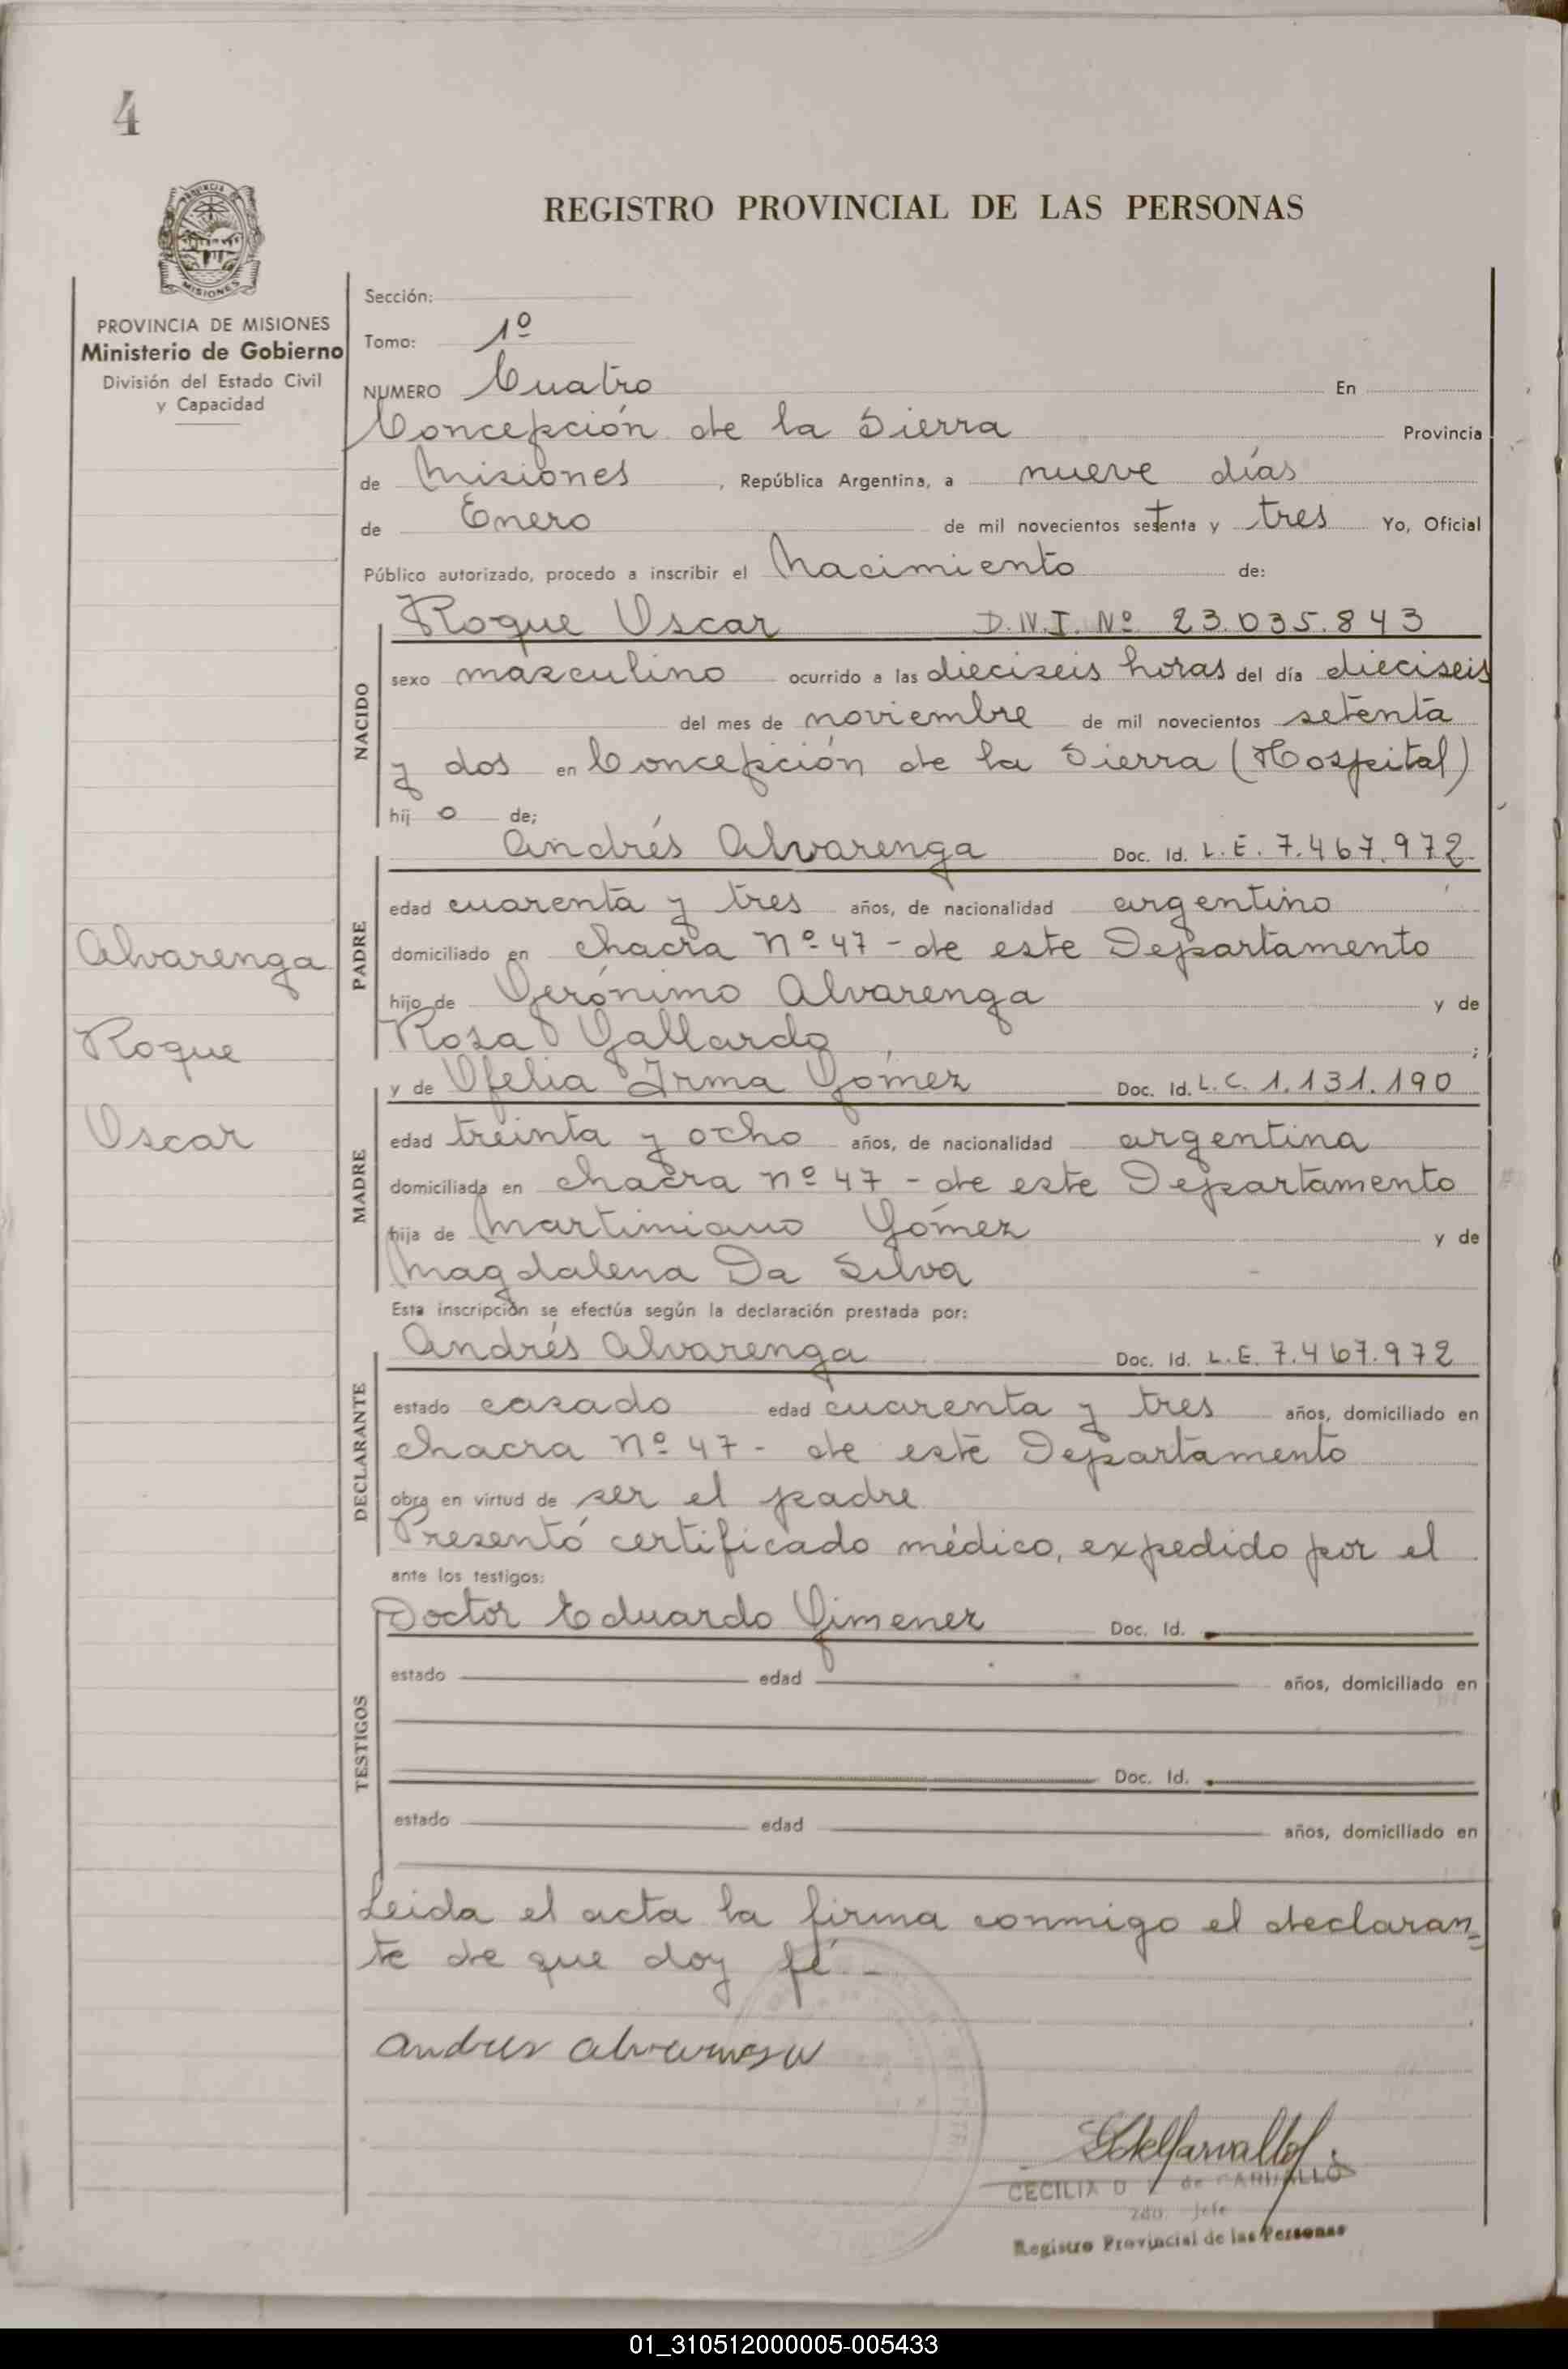 4
REGISTRO PROVINCIAL DE LAS PERSONAS
PROVINCIA
MISIONES
PROVINCIA DE MISIONES
Ministerio de Gobierno
División del Estado Civil
y Capacidad
Alvarenga
Roque
Oscar
Sección:
Tomo: 1º
NUMERO Cuatro En
Concepción de la Sierra Provincia
de Misiones, República Argentina, a nueve días
de Enero de mil novecientos setenta y tres Yo, Oficial
Público autorizado, procedo a inscribir el Nacimiento de:
NACIDO
Roque Oscar D.N.I. Nº 23.035.843
sexo masculino ocurrido a las dieciseis horas del día dieciseis
del mes de noviembre de mil novecientos setenta
y dos en Concepción de la Sierra (Hospital)
hij o de;
PADRE
Andrés Alvarenga Doc. Id. L.E. 7.467.972
edad cuarenta y tres años, de nacionalidad argentino
domiciliado en chacra nº 47 - de este Departamento
hijo de Gerónimo Alvarenga y de
Rosa Gallardo ;
MADRE
y de Ofelia Irma Gómez Doc. Id. L.C. 1.131.190
edad treinta y ocho años, de nacionalidad argentina
domiciliada en chacra nº 47 - de este Departamento
hija de Martimiano Gómez y de
Magdalena Da Silva
Esta inscripción se efectúa según la declaración prestada por:
DECLARANTE
Andrés Alvarenga Doc. Id. L.E. 7.467.972
estado casado edad cuarenta y tres años, domiciliado en
chacra nº 47 - de este Departamento
obra en virtud de ser el padre
Presentó certificado médico, expedido por el
ante los testigos:
TESTIGOS
Doctor Eduardo Gimenez Doc. Id.
estado edad años, domiciliado en
Doc. Id.
estado edad años, domiciliado en
Leida el acta la firma conmigo el declaran=
te de que doy fé. -
Andres Alvarenga
CECILIA D de CARVALLO
2do. Jefe
Registro Provincial de las Personas
01_310512000005-005433